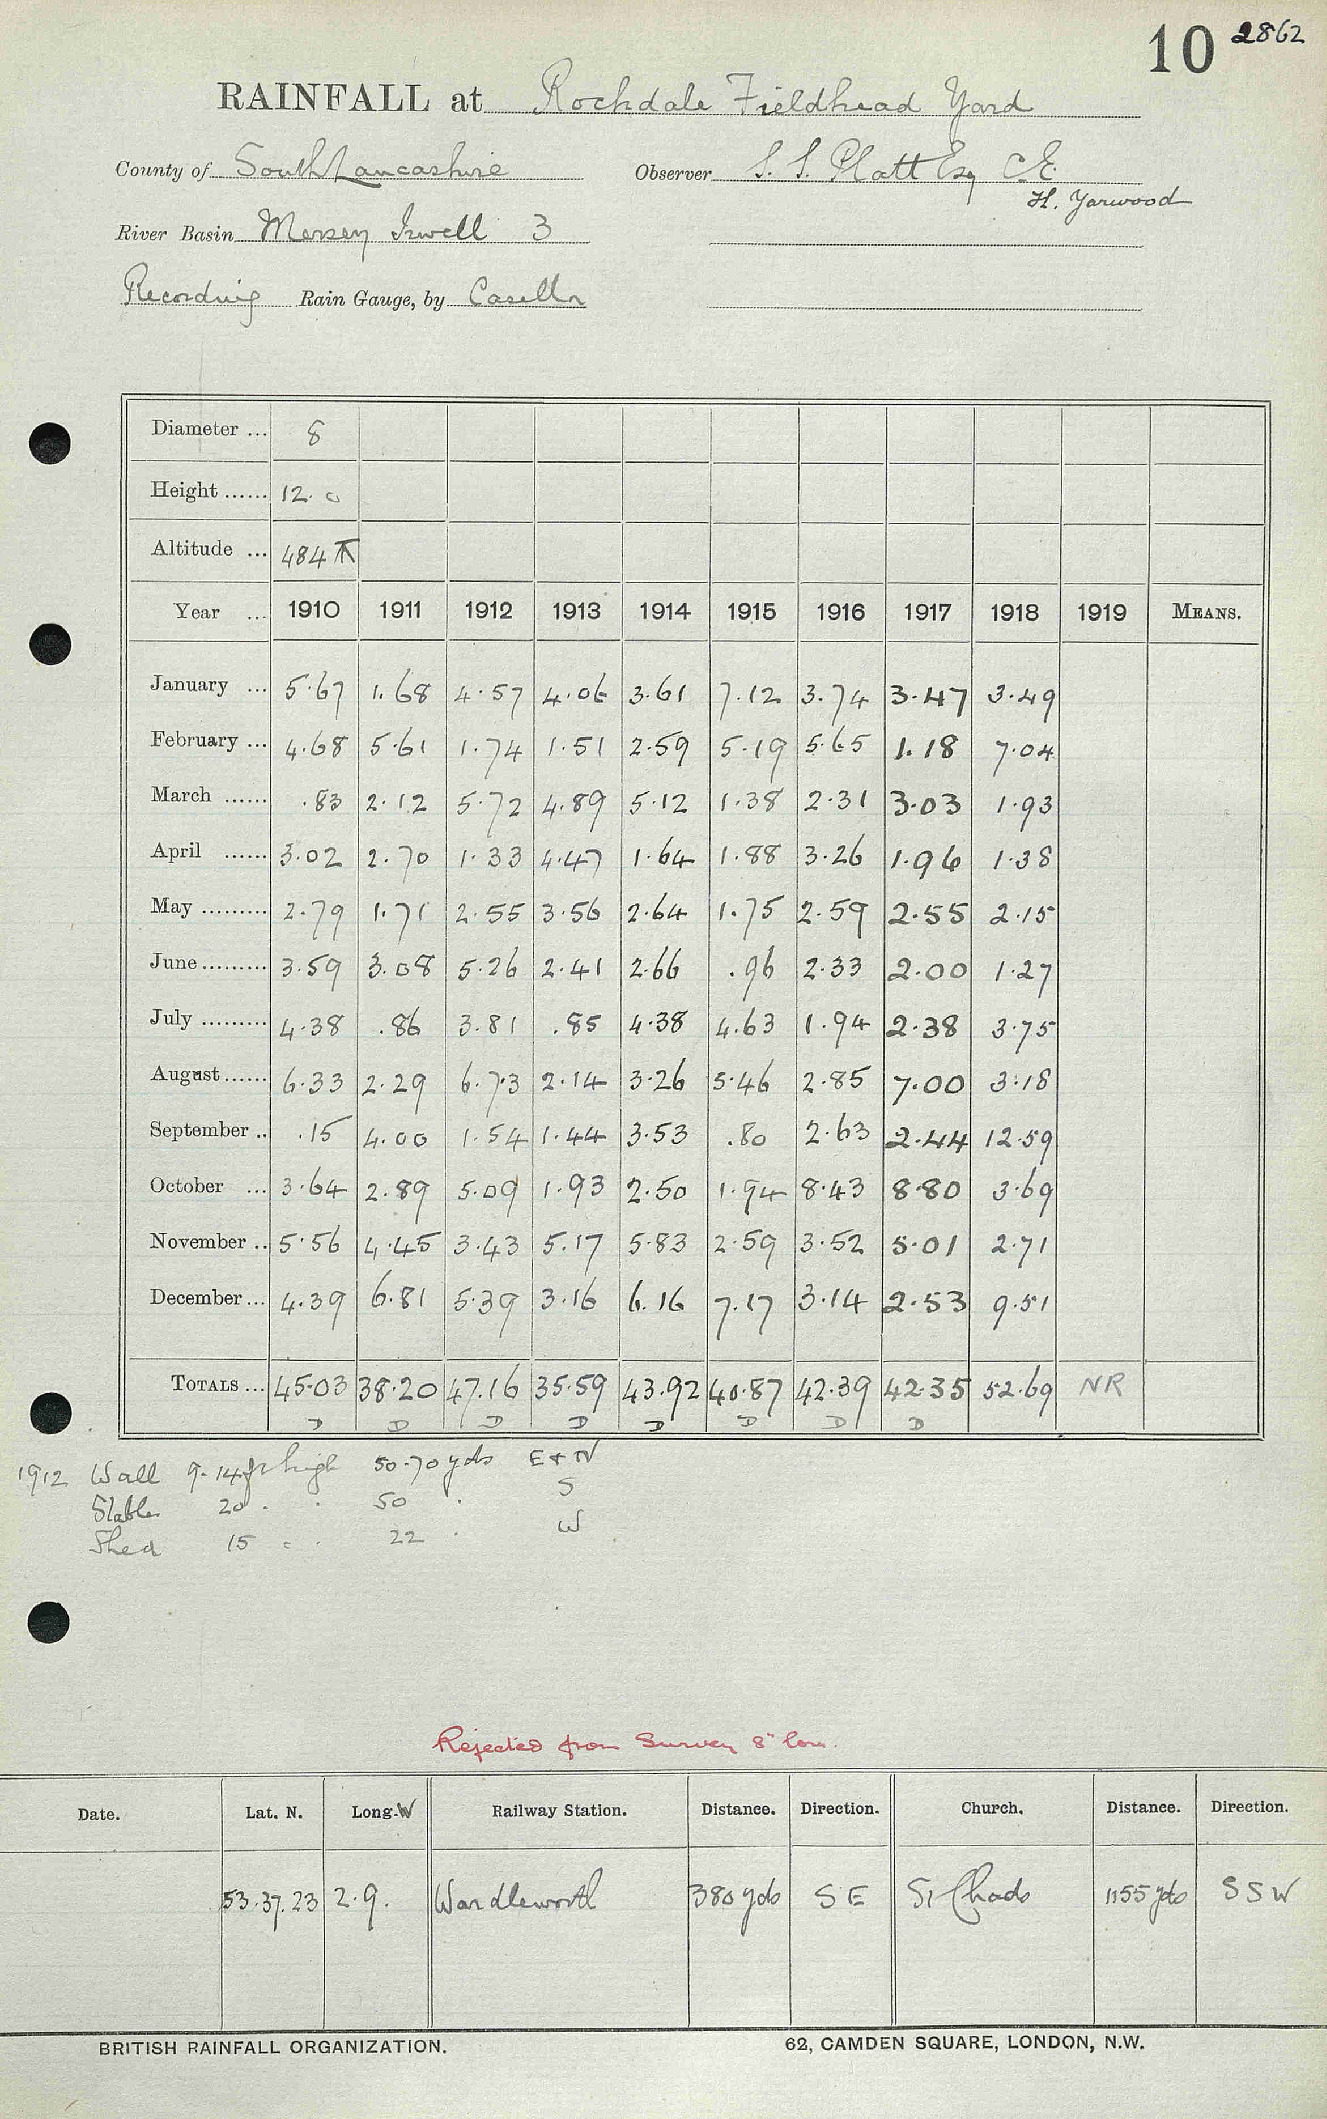 10 2862
RAINFALL at Rochdale Fieldhead Yard
County of South Lancashire Observer S. S. Platt Esq C.E.
H. Yarwood
River Basin Mersey Irwell 3
Recording Rain Gauge, by Casella
Diameter ... 8
Height ...... 12. 0
Altitude ... 484
Year ... 1910 1911 1912 1913 1914 1915 1916 1917 1918 1919 MEANS.
January ... 5.67 1.68 4.57 4.06 3.61 7.12 3.74 3.47 3.49
February ... 4.68 5.61 1.74 1.51 2.59 5.19 5.65 1.18 7.04
March ...... .83 2.12 5.72 4.89 5.12 1.38 2.31 3.03 1.93
April ...... 3.02 2.70 1.33 4.47 1.64 1.88 3.26 1.96 1.38
May ......... 2.79 1.71 2.55 3.56 2.64 1.75 2.59 2.55 2.15
June ......... 3.59 3.08 5.26 2.41 2.66 .96 2.33 2.00 1.27
July ......... 4.38 .86 3.81 .85 4.38 4.63 1.94 2.38 3.75
August ...... 6.33 2.29 6.73 2.14 3.26 5.46 2.85 7.00 3.18
September .. .15 4.00 1.54 1.44 3.53 .80 2.63 2.44 12.59
October ... 3.64 2.89 5.09 1.93 2.50 1.94 8.43 8.80 3.69
November .. 5.56 4.45 3.43 5.17 5.83 2.59 3.52 5.01 2.71
December ... 4.39 6.81 5.39 3.16 6.16 7.17 3.14 2.53 9.51
TOTALS ... 45.03 38.20 47.16 35.59 43.92 40.87 42.39 42.35 52.69 NR
D D D D D D D D
1912 Wall 9-14 ft high 50-70 yds E & N
Stable 20 . . 50 . S
Shed 15 . . 22 . W
Rejected from Survey 8" low.
Date. Lat. N. Long. W Railway Station. Distance. Direction. Church. Distance. Direction.
53.37.23 2.9. Wardleworth 380 yds S E St Chads 1155 yds S S W
BRITISH RAINFALL ORGANIZATION. 62, CAMDEN SQUARE, LONDON, N.W.